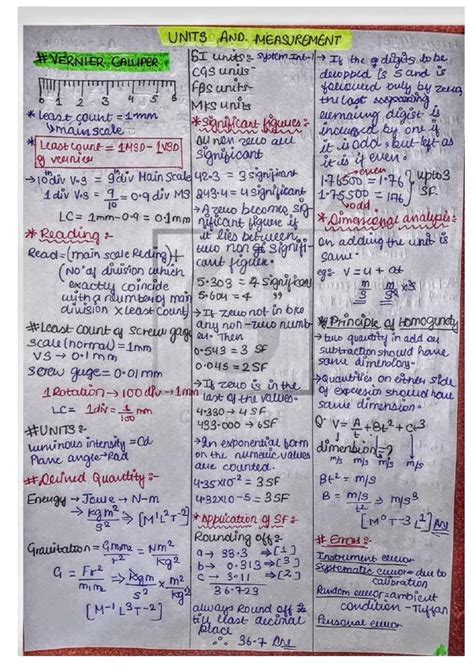 UNITS AND MEASUREMENT
# VERNIER CALLIPER
0 1 2 3 4 5 6
* Least count = 1mm
→ Main scale
* Least count = 1MSD - 1VSD
of vernier
→ 10 div V.S = 9 div Main Scale
1 div V.S = 9/10 = 0.9 div MS
LC = 1mm - 0.9 = 0.1mm
* Reading :-
Read = (main scale Reding) +
(No. of division which
exactly coincide
with a number of main
division x Least Count)
# Least Count of Screw gage
scale (normal) = 1mm
VS → 0.1mm
screw guge = 0.01mm
1 Rotation → 100 div → 1mm
LC = 1 div = 1/100 mm
# UNITS :-
Luminous intensity = Cd
Plane angle → Rad
# Derived Quantity :-
Energy → Joule → N-m
⇒ kgm²/s² ⇒ [M¹L²T⁻²]
Gravitation = Gmm/r² = Nm²/kg²
G = Fr²/m₁m₂ ⇒ kgm/s² x m²/kg²
[M⁻¹L³T⁻²]
SI units :- System Int.
CGS units -
FPS units
MKS units
* Significant figures :-
All non zero are
significant
42.3 = 3 significant
243.4 = 4 significant
→ A zero becomes sig-
nificant figure if
it lies between
two non signifi-
cant figure.
5.303 = 4 significant
5.604 = 4 "
→ If zero not in b/w
any non-zero numb-
er. Then
0.543 = 3 SF
0.045 = 2 SF
→ If zero is in the
last of the values.
4.330 → 4 SF
433.000 → 6 SF
→ In exponential form
on the numeric values
are counted.
4.35x10² = 3 SF
4.32x10⁻⁵ = 3 SF
* Application of SF :-
Rounding off :-
a → 33.3 ⇒ [1]
b → 0.313 ⇒ [3]
c → 3.11 ⇒ [2]
36.723
always Round off
till least decimal
place
∴ 36.7 Ans
→ If the digits to be
dropped is 5 and is
followed only by zeros
the last
remaning digit is
incresed by one if
it is odd, but left as
it is if even.
1.76500 = 1.76 → even
1.75500 = 1.76 → odd
upto 3 SF
* Dimensional analysis :-
On adding the unit is
same.
eg:- V = u + at
m/s m/s m/s² x s
* Principle of Homogenety
→ two quantity in add or
subtraction should have
same dimensions.
→ Quantities on either side
of expresion should have
same dimension.
Q. V = A/t + Bt² + Ct³
dimension = ?
m/s m/s m/s m/s
Bt² = m/s
B = m/s/t² ⇒ m/s³
[M⁰T⁻³L¹] Ans
# Errors :-
Instrument error
Systematic error → due to
calibration
Random error = ambient
condition - Tuffan
Personal error